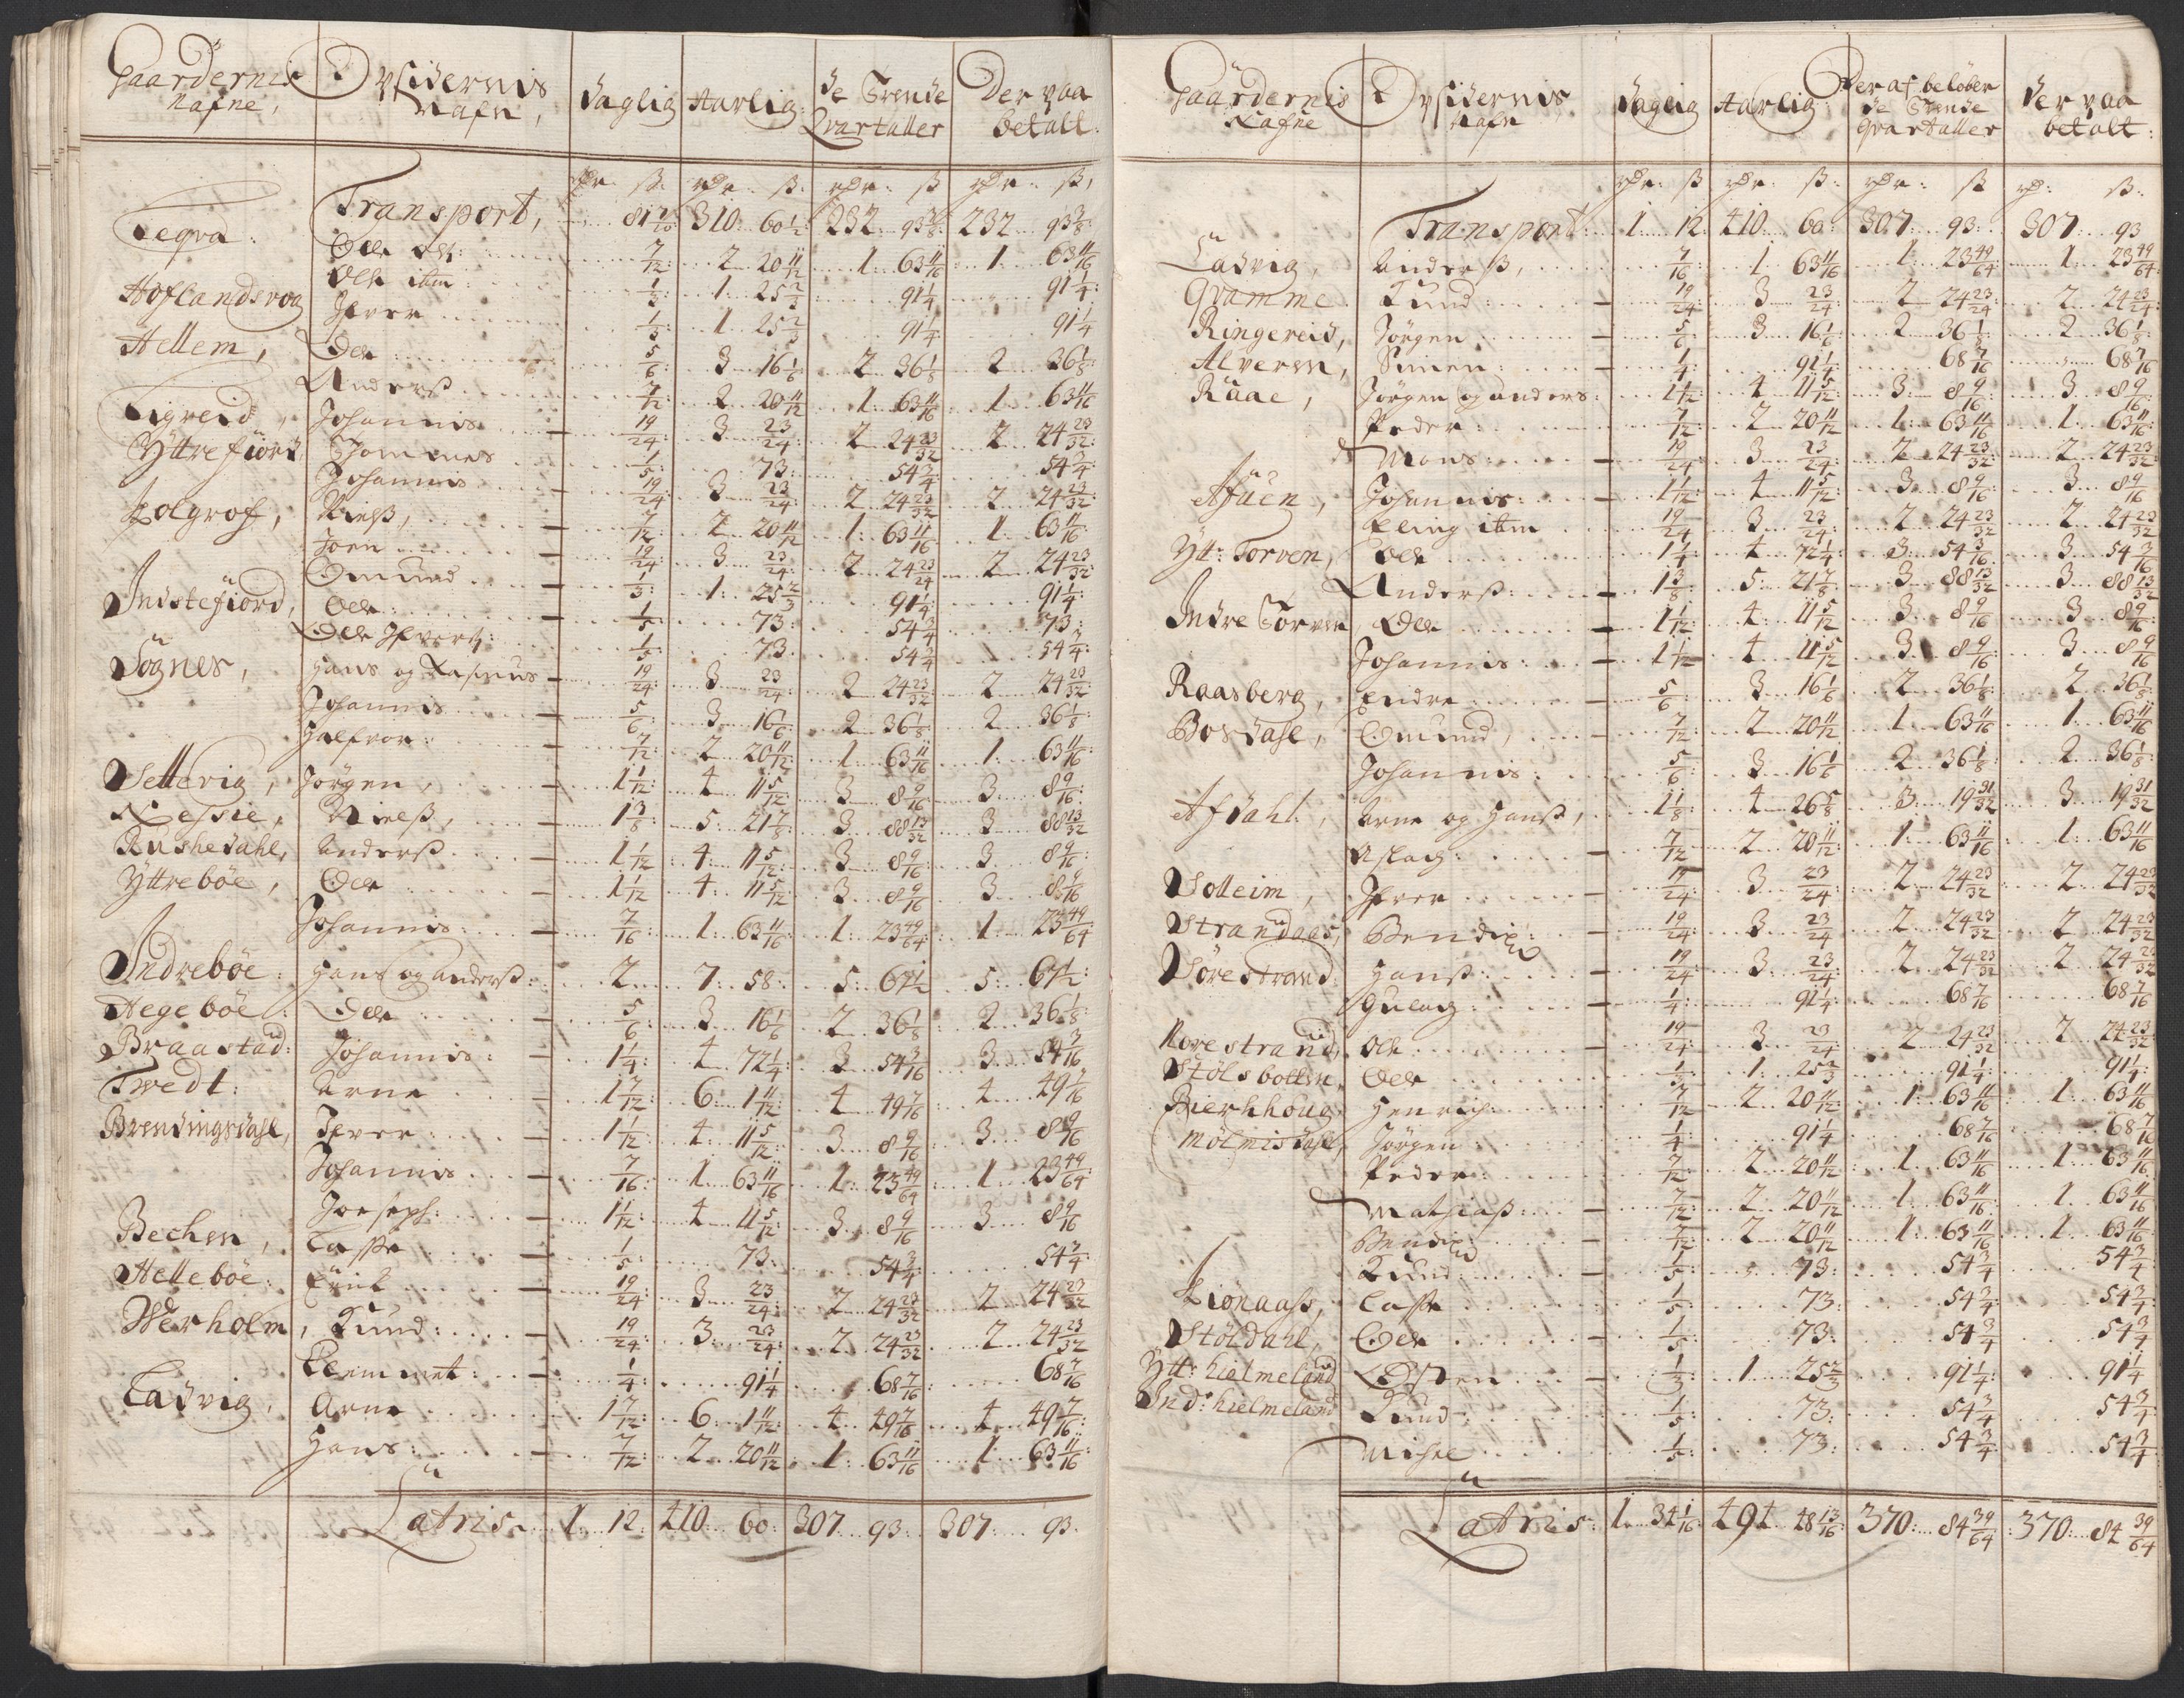 Gaardernis Nafne, Opsidernis Nafn, daglig Aarlig: de Trende Qvartaller Der paa betalt:
rdr: ß: rdr: ß: rdr: ß rdr: ß,
Transport, 81 7/20 310: 60 1/2: 232 93 3/8: 232 93 3/8
Legva: Ole 7/12 2 20 11/12 1: 63 11/16 1 63 11/16
Ole ibm 1/3: 1: 25 2/3 91 1/4 91 1/4:
Hoflandsvog Ifver 1/3: 1 25 2/3 91 1/4: 91 1/4
Hellem, Ole 5/6 3 16 1/6 2 36 1/8 2 36 1/8:
Anderß 7/12 2 20 11/12 1: 63 11/16 1 63 11/16
Ligreid, Johannis 19/24: 3 23/24: 2 24 23/32 2 24 23/32:
Yttrefiord, Thommes 1/5: 73: 54 3/4 54 3/4:
Johannis 19/24 3 23/24: 2 24 23/32 2 24 23/32:
Holgrof, Nielß, 7/12: 2 20 11/12 1: 63 11/16 1 63 11/16
Joen 19/24: 3 23/24: 2 24 23/24 2 24 23/32:
Omund 1/3: 1: 25 2/3 91 1/4: 91 1/4:
Indstefiord, Ole 1/5 73: 54 3/4 73:
Ole Ifvers: 1/5 73 54 3/4 54 3/4:
Sognes, Hans og Rasmus 19/24: 3 23/24: 2 24 23/32 2 24 23/32:
Johannis 5/6: 3: 16 1/6: 2 36 1/8 2 36 1/8:
Halfvor: 7/12: 2 20 11/12: 1 63 11/16 1: 63 11/16:
Vetterig, Jörgen, 1 1/12: 4 11 5/12: 3 8 9/16: 3 8 9/16:
Nessie, Nielß, 1 3/8: 5: 21 7/8: 3 88 13/32 3 88 13/32
Rushedahl, Anderß 1 1/12 4: 11 5/12: 3 8 9/16: 3 8 9/16:
Yttreböe, Ole 1 1/12 4: 11 5/12 3 8 9/16 3 8 9/16
Johannis: 7/16 1: 63 11/16 1: 23 49/64: 1 23 49/64
Indreböe: Hans og Anderß: 2 7 58: 5: 67 1/2 5: 67 1/2:
Hegeböe: Ole 5/6: 3 16 1/6 2 36 1/8 2 36 1/8:
Braastad: Johannis: 1 1/4: 4 72 1/4 3 54 3/16 3: 54 3/16
Twedt: Arne 1 7/12: 6: 1 11/12 4 49 7/16 4 49 7/16
Brendingsdahl, Ifver 1 1/12 4: 11 5/12: 3 8 9/16 3: 8 9/16
Johannis 7/16: 1 63 11/16 1: 23 49/64 1 23 49/64:
Joeseph: 1 1/12: 4 11 5/12: 3 8 9/16 3 8 9/16
Bechen, Lasse 1/5: 73: 54 3/4: 54 3/4
Helleböe: Erik 19/24 3 23/24: 2 24 23/32 2 24 23/32
Werholm, Knud: 19/24: 3: 23/24: 2 24 23/32 2 24 23/32
Clemmet: 1/4: 91 1/4 68 7/16 68 7/16
Ladvig, Arne 1 7/12: 6: 1 11/12: 4 49 7/16 4 49 7/16:
Hans: 7/12: 2 20 11/12 1: 63 11/16 1 63 11/16:
Latris 1 12 410 60: 307 93: 307: 93.
Gaardernis Nafne Opsidernis Nafn daglig Aarlig: Der af beløber de Trende Qvartaller der paa betalt:
rdr: ß rdr: ß: rdr: ß rd: ß:
Transport: 1 12 410: 60: 307 93: 307 93
Ladvig, Anderß, 7/16 1 63 11/16 1 23 49/64 1: 23 49/64:
Qvamme Knud: 19/24: 3 23/24 2 24 23/24: 2 24 23/24:
Ringereid, Jörgen 5/6: 3 16 1/6: 2 36 1/8: 2 36 1/8:
Alveren, Simen: 1/4 91 1/4: 68 7/16 68 7/16
Raae, Jörgen og anders: 1 1/12 4 11 5/12: 3 8 9/16: 3: 8 9/16:
Peder 7/12: 2 20 11/12 1: 63 11/16 1: 63 11/16:
Mons: 19/24: 3 23/24: 2 24 23/32: 2 24 23/32
Afuen, Johannis: 1 1/12: 4 11 5/12 3: 8 9/16: 3: 8 9/16
Eling ibm 19/24 3: 23/24: 2 24 23/32 2 24 23/32
Ytt: Torven, Ole 1 1/4 4 72 1/4: 3: 54 3/16 3 54 3/16
Anderß: 1 3/8: 5: 21 7/8: 3 88 13/32 3 88 13/32
Indre Torven Ole 1 1/12: 4 11 5/12 3 8 9/16 3 8 9/16:
Johannis: 1 1/12 4 11 5/12 3: 8 9/16 3: 8 9/16
Raasberg, Endre 5/6: 3: 16 1/6 2 36 1/8: 2 36 1/8:
Bosdahl, Omund, 7/12: 2 20 11/12 1 63 11/16 1: 63 11/16
Johannis: 5/6: 3 16 1/6 2 36 1/8: 2 36 1/8:
Afdahl, Arne og Hanß, 1 1/8: 4 26 5/8 3: 19 31/32 3 19 31/32
Aslag: 7/12 2 20 11/12: 1: 63 11/16 1: 63 11/16
Solleim, Ifver 19/24: 3 23/24: 2 24 23/32: 2 24 23/32
Strandaas, Bendix 19/24: 3 23/24 2 24 23/32 2 24 23/32
Sörestrand, Hanß: 19/24: 3: 23/24 2 24 23/32 2 24 23/32
Gulag 1/4: 91 1/4: 68 7/16 68 7/16
Norestrand, Ole 19/24: 3 23/24 2 24 23/32 2 24 23/32:
Stölsbotten, Ole 1/3: 1: 25 2/3 91 1/4: 91 1/4:
Bierkhoug Henrich: 7/12 2 20 11/12: 1: 63 11/16 1: 63 11/16
Mölmisdahl, Jörgen 1/4: 91 1/4: 68 7/16 68 7/16
Peder: 7/12: 2 20 11/12: 1: 63 11/16 1: 63 11/16
Mathiaß: 7/12: 2 20 11/12 1: 63 11/16: 1 63 11/16
Bendix: 7/12 2 20 11/12 1: 63 11/16 1 63 11/16
Knud: 1/5: 73: 54 3/4 54 3/4:
Lionaaß, Lasse 1/5 73: 54 3/4: 54 3/4:
Stöldahl, Ole 1/5 73: 54 3/4 54 3/4
Ytt: hielmeland Osten 1/3: 1 25 2/3 91 1/4: 91 1/4
Ind: hielmeland Knud 1/5: 73: 54 3/4 54 3/4:
Michel 1/5 73: 54 3/4 54 3/4
Latris: 1 34 1/16 494 48 13/16: 370: 84 39/64: 370 84 39/64